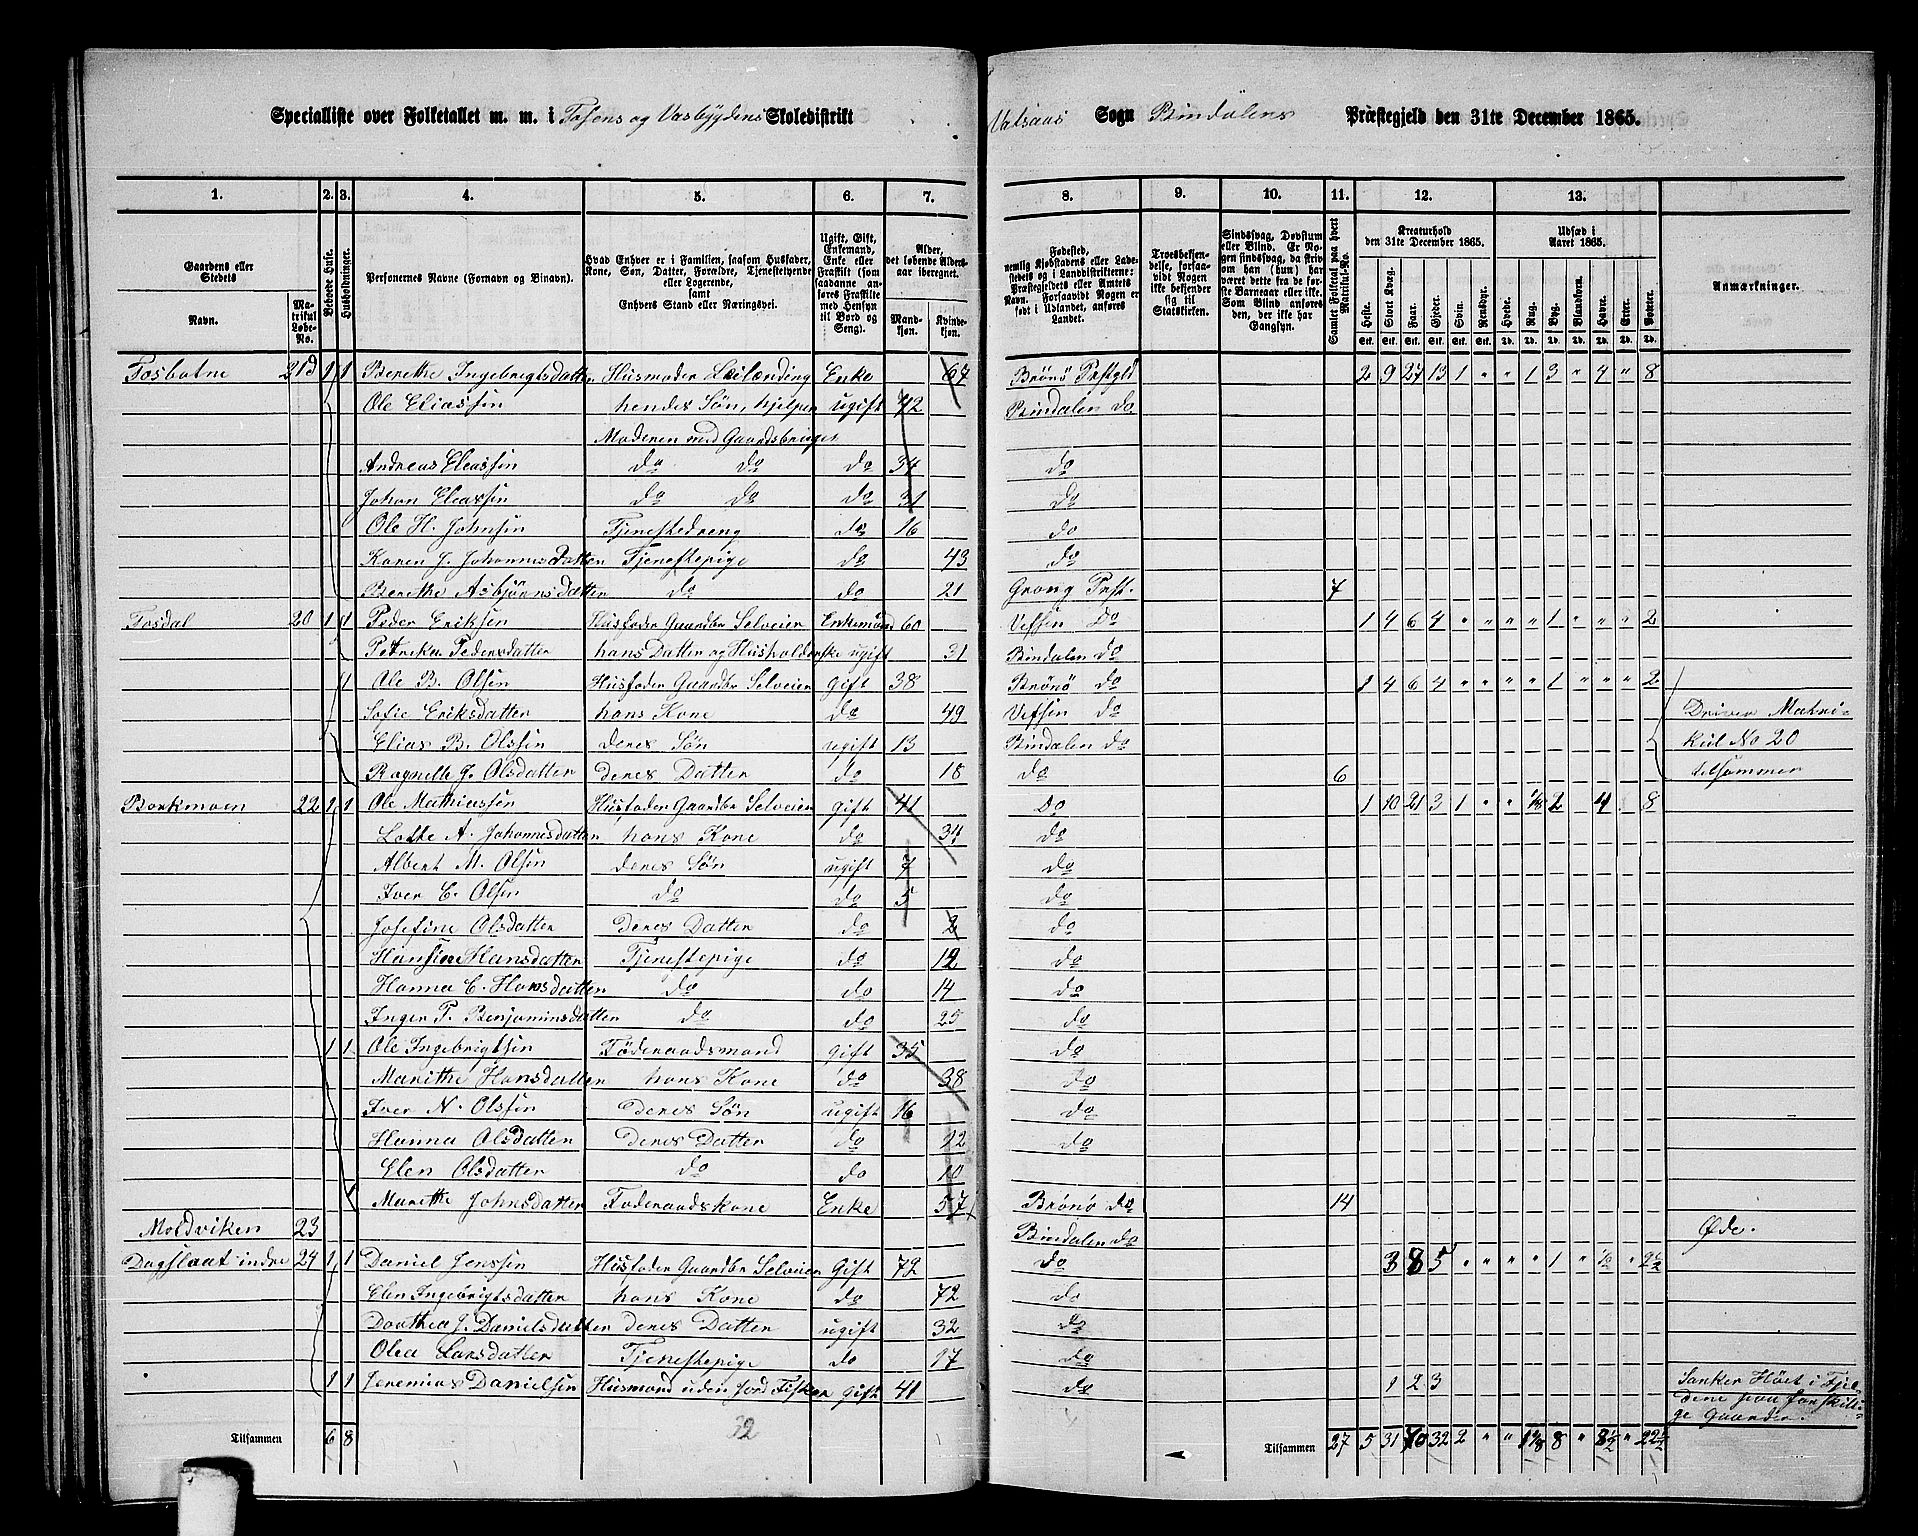 Specialliste over Folketallet m. m. i Tosens og Vasbygdens Skoledistrikt Vatsaas Sogn Bindalens Præstegjeld den 31te December 1865.
1. 2. 3. 4. 5. 6. 7. 8. 9. 10. 11. 12. 13.
Gaardens eller Stedets
Navn.
Matrikul Løbe-No.
Beboede Huse.
Husholdninger.
Personernes Navne (Fornavn og Binavn).
Hvad Enhver er i Familien, saasom Husfader, Kone, Søn, Datter, Forældre, Tjenestetyende eller Logerende, samt Enhvers Stand eller Næringsvei.
Ugift, Gift, Enkemand, Enke eller Fraskilt (som saadanne anføres Fraskilte med Hensyn til Bord og Seng).
Alder, det løbende Aldersaar iberegnet.
Mandkjøn. Kvindekjøn.
Fødested, nemlig Kjøbstadens eller Ladestedets og i Landdistrikterne: Præstegjeldets eller Amtets Navn. Forsaavidt Nogen er født i Udlandet, anføres Landet.
Troesbekjendelse, forsaavidt Nogen ikke bekjender sig til Statskirken.
Sindssvag, Døvstum eller Blind. Er Nogen sindssvag, da skrives om han (hun) har været dette fra de første Barneaar eller ikke. Som Blind anføres den, der ikke har Gangsyn.
Samlet Folketal paa hvert Matrikul-No.
Kreaturhold den 31te December 1865.
Heste. Stort Kvæg. Faar. Gjeder. Svin. Rensdyr.
Udsæd i Aaret 1865.
Hvede. Rug. Byg. Blandkorn. Havre. Erter. Poteter.
Anmærkninger.
Tosbotne 21d 1 1 Berethe Ingebrigtsdatter Husmoder Leilænding Enke 67 Brønø Prstgld 2 9 27 13 1 " " 1 3 " 4 " 8
Ole Eliassen hendes Søn, hjelper ugift 42 Bindalen do
Moderen med Gaardsbruget
Andreas Eleassen do do do 34 do
Johan Eleassen do do do 31 do
Ole H. Johnsen Tjenestedreng do 16 do
Karen J. Johannesdatter Tjenestepige do 43 do
Berethe Asbjørnsdatter do do 21 Grong Prst. 7
Tosdal 20 1 1 Peder Eriksen Husfader Gaardbr Selveier Enkemand 60 Vefsen Do 1 4 6 4 " " " " 1 " " " 2
Petrika Pedersdatter hans Datter og Husholderske ugift 31 Bindalen do
1 Ole B. Olsen Husfader Gaardbr Selveier Gift 38 Brønø do 1 4 6 4 " " " " 1 " " " 2
Sofie Eriksdatter hans Kone do 49 Vefsen do Driver Matri-
Elias B. Olssen deres Søn ugift 13 Bindalen do kul No 20
Ragnelle J. Olsdatter deres Datter do 18 do 6 tilsammen
Borkmoen 22 1 1 Ole Mathiassen Husfader Gaardbr Selveier gift 41 Do 1 10 21 3 1 " " 1/8 2 4 8
Lotte A. Johannesdatter hans Kone do 34 do
Albert M. Olsen deres Søn ugift 7 do
Iver E. Olsen do do 5 do
Josefine Olsdatter Deres Datter do 2 do
Hansine Hansdatter Tjenestepige do 12 do
Hanna C. Hansdatter do do 14 do
Inger P. Benjaminsdatter do do 25 do
1 1 Ole Ingebrigtsen Føderaadsmand gift 35 do
Marithe Hansdatter hans Kone do 38 do
Iver N. Olssen Deres Søn ugift 16 do
Hanna Olsdatter Deres Datter do 12 do
Elen Olsdatter do do 10
1 Marithe Johnsdatter Føderaadskone Enke 57 Brønø do 14
Moldviken 23 Bindalen do Øde.
Dagslaat indre 24 1 1 Daniel Jenssen Husfader Gaardbr Selveier Gift 72 do 3 8 5 " " " " 1 " 1/2 " 2 1/2
Elen Ingebrigtsdatter hans Kone do 72 do
Dorthea J. Danielsdatter deres Datter ugift 32 do
Olea Larsdatter Tjenestepige do 17 do
1 1 Jeremias Danielsen Husmand uden Jord Fisker gift 41 do 1 2 3 Sanker Høet i Fjel-
dene paa forskilli-
ge Gaarder.
Tilsammen 6 8 32 Tilsammen 27 5 31 70 32 2 " " 1 1/8 8 " 8 1/2 " 22 1/2